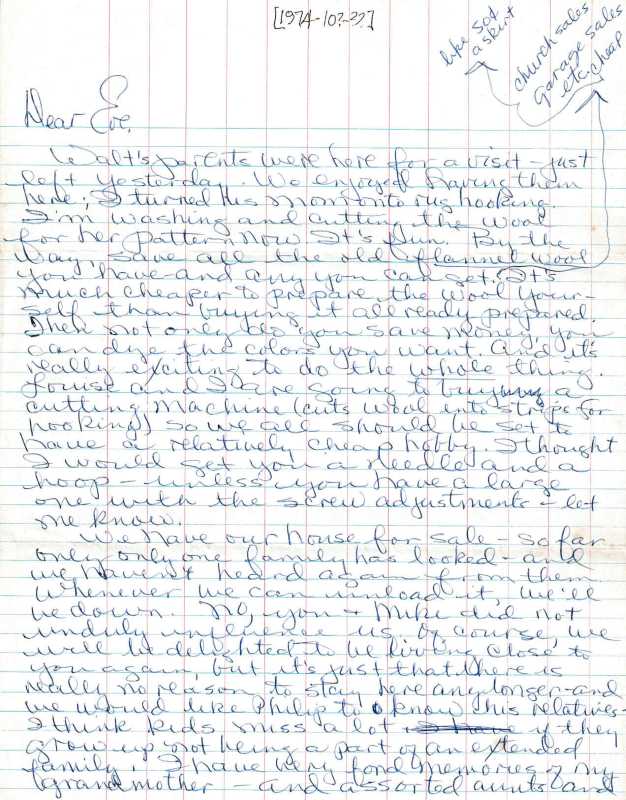 [1974-10?-??]
like 50¢
a skirt
church sales
garage sales
etc. cheap
Dear Eve,
Walt's parents were here for a visit - just
left yesterday. We enjoyed having them
here; I turned his mom onto rug hooking.
I'm washing and cutting the wool
for her pattern now. It's fun. By the
way, save all the old flannel wool
you have and any you can get. It's
much cheaper to prepare the wool your-
self than buying it all ready prepared.
Then not only do you save money, you
can dye the colors you want. And it's
really exciting to do the whole thing.
Louise and I are going to buy a
cutting machine (cuts wool into strips for
hooking) so we all should be set to
have a relatively cheap hobby. I thought
I would get you a needle and a
hoop - unless you have a large
one with the screw adjustments - let
me know.
We have our house for sale - so far
only only one family has looked - and
we haven't heard again from them.
Whenever we can unload it, we'll
be down. No, you + Mike did not
unduly influence us, of course, we
will be delighted to be living close to
you again, but it's just that there is
really no reason to stay here any longer - and
we would like Philip to know his relatives -
I think kids miss a lot if they
grow up not being a part of an extended
family. I have very fond memories of my
grandmother - and assorted aunts and